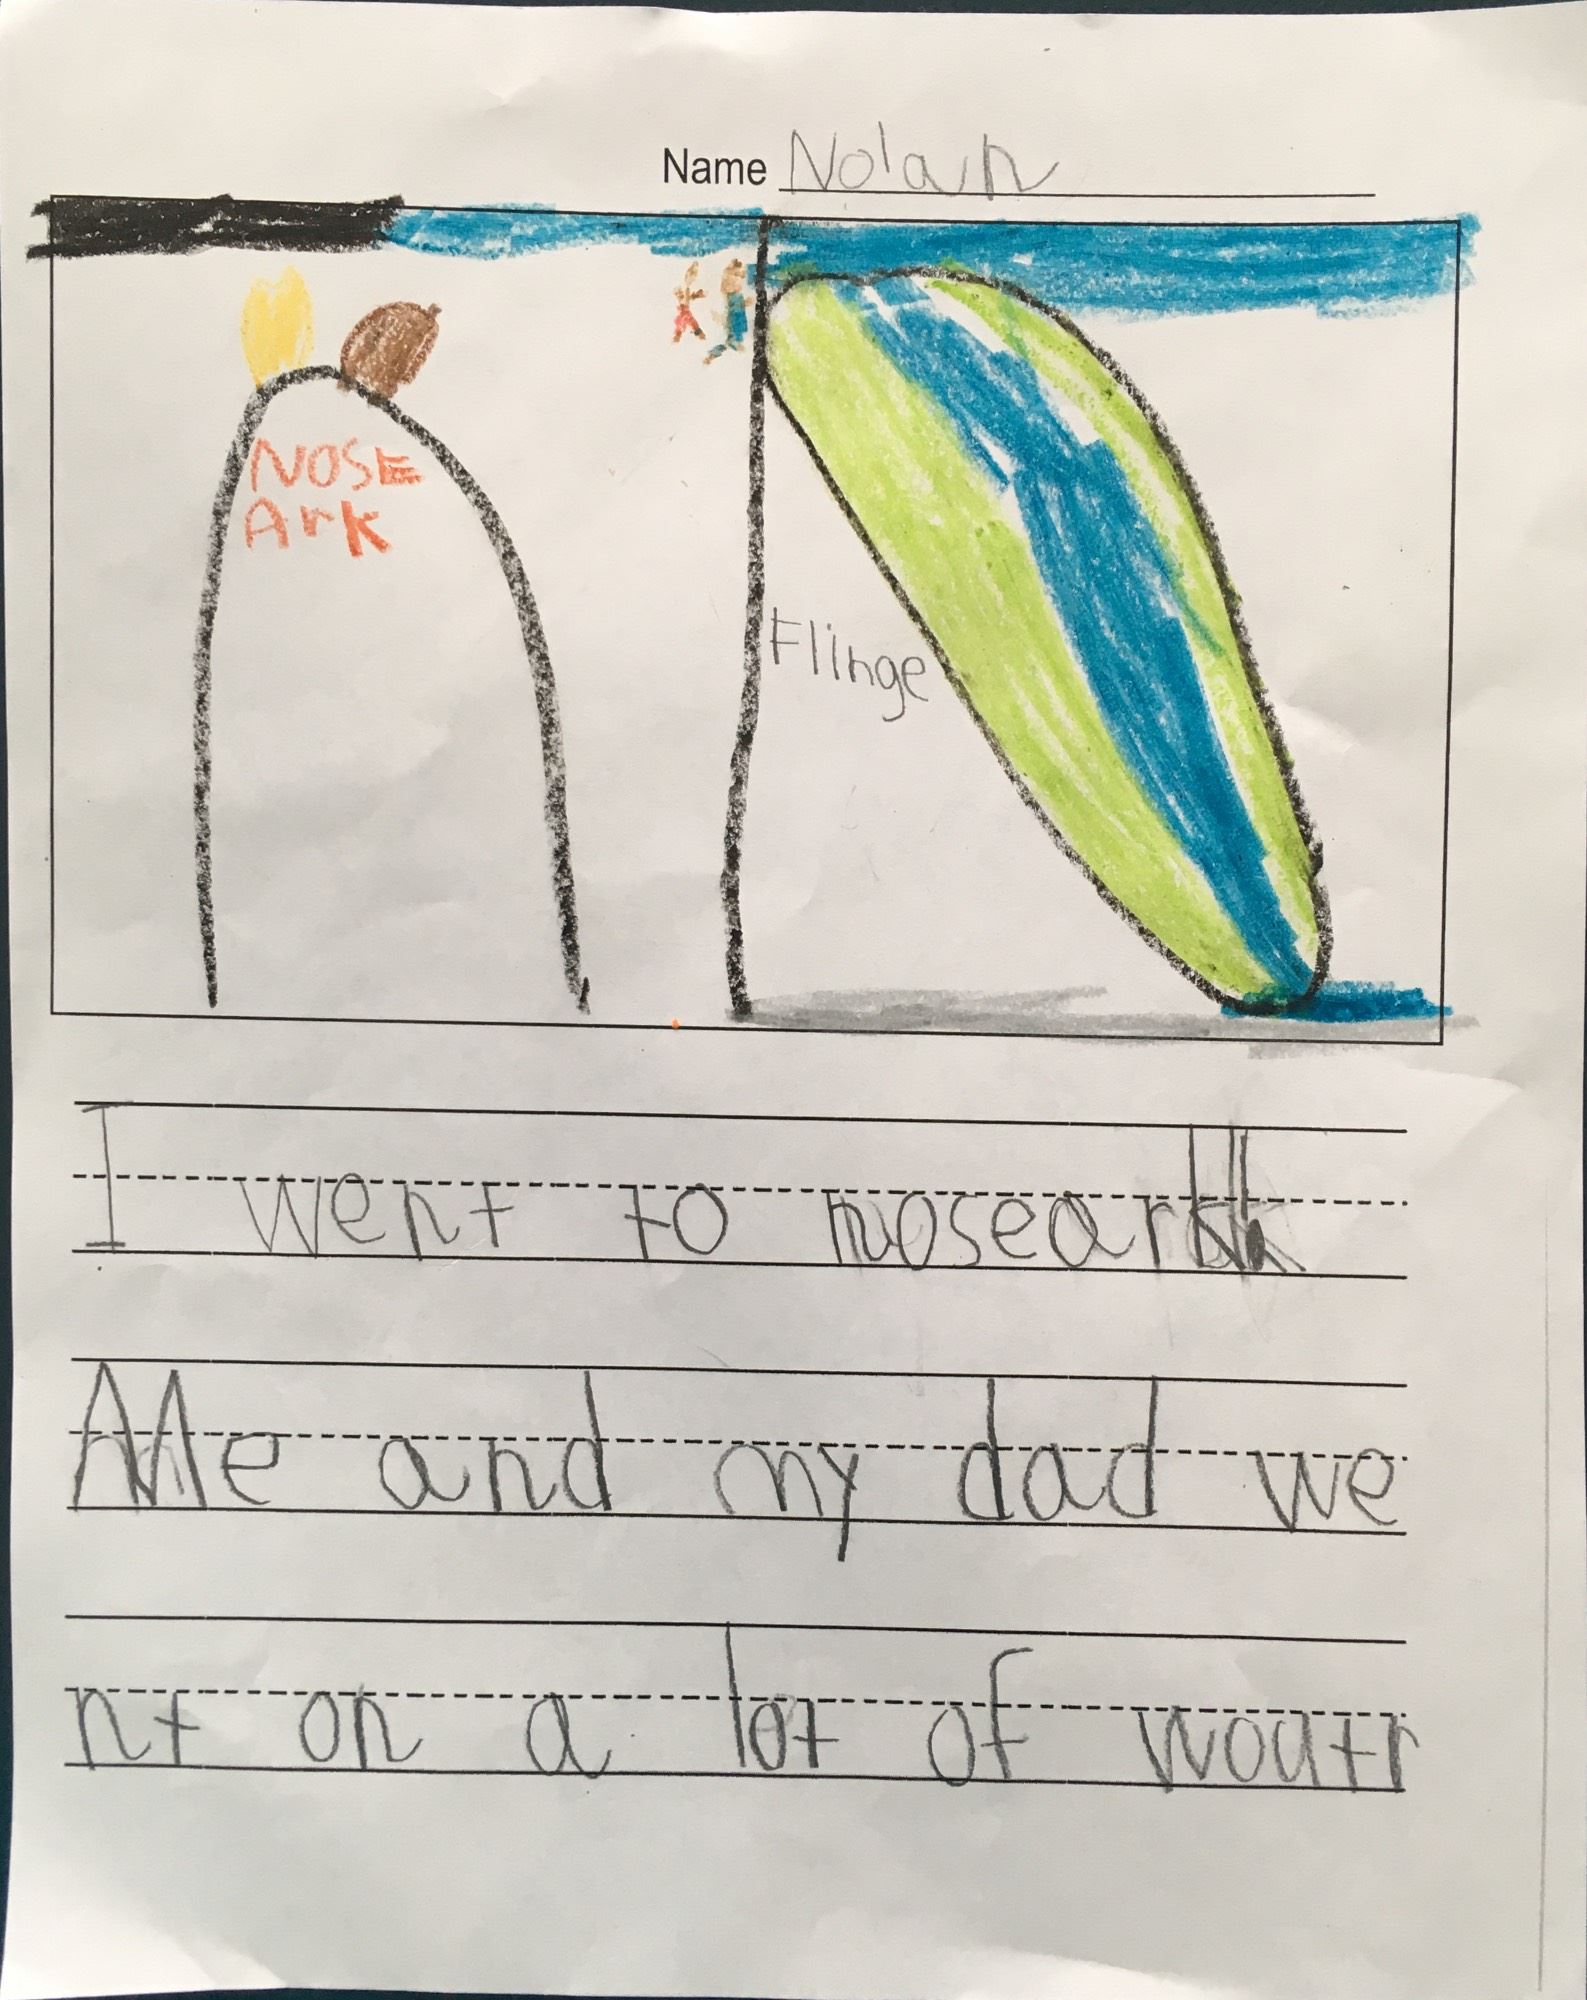 Name Nolan
NOSE
Ark
Flinge
I went to noseark
Me and my dad we
nt on a lot of woatr